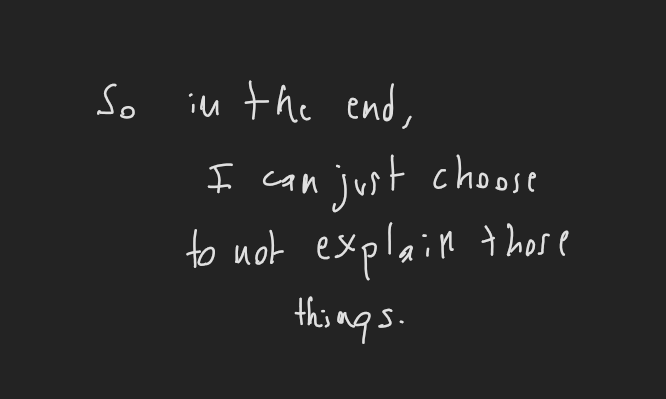 So in the end,
I can just choose
to not explain those
things.